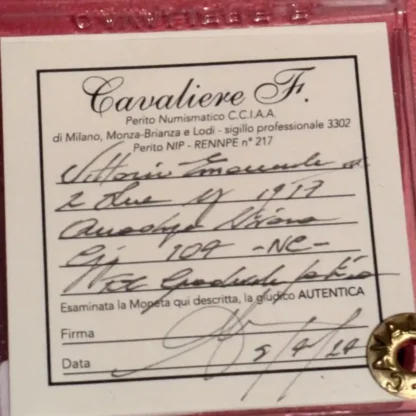 Cavaliere F.
Perito Numismatico C.C.I.A.A.
di Milano, Monza-Brianza e Lodi - sigillo professionale 3302
Perito NIP - RENNPE n° 217
Vittorio Emanuele III
2 Lire 1917
Quadriga
Gig 109 - NC -
Examinata la Moneta qui descritta, la giudico AUTENTICA
Firma
Data 5/4/24